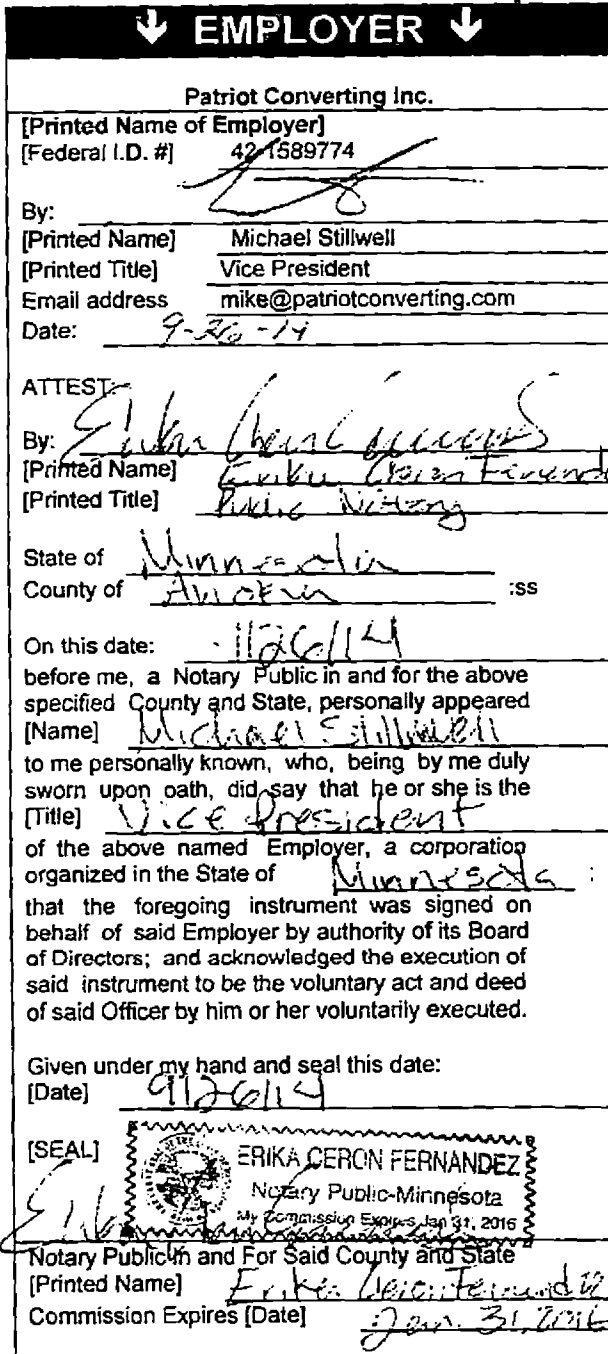 EMPLOYER
Patriot Converting Inc.
[Printed Name of Employer]
[Federal I.D. #] 42-1589774
By:
[Printed Name] Michael Stillwell
[Printed Title] Vice President
Email address mike@patriotconverting.com
Date: 9-26-14
ATTEST:
By:
[Printed Name] Erika Ceron Fernande
[Printed Title] Public Notary
State of Minnesota
County of Anoka :ss
On this date: 9/26/14
before me, a Notary Public in and for the above
specified County and State, personally appeared
[Name] Michael Stillwell
to me personally known, who, being by me duly
sworn upon oath, did say that he or she is the
[Title] Vice President
of the above named Employer, a corporation
organized in the State of Minnesota :
that the foregoing instrument was signed on
behalf of said Employer by authority of its Board
of Directors; and acknowledged the execution of
said instrument to be the voluntary act and deed
of said Officer by him or her voluntarily executed.
Given under my hand and seal this date:
[Date] 9/26/14
[SEAL]
ERIKA CERON FERNANDEZ
Notary Public-Minnesota
My Commission Expires Jan 31, 2016
Notary Public in and For Said County and State
[Printed Name] Erika Ceron Fernandez
Commission Expires [Date] Jan. 31, 2016